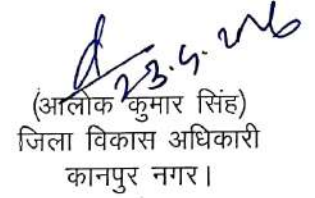 23.9.2026
(आलोक कुमार सिंह)
जिला विकास अधिकारी
कानपुर नगर।